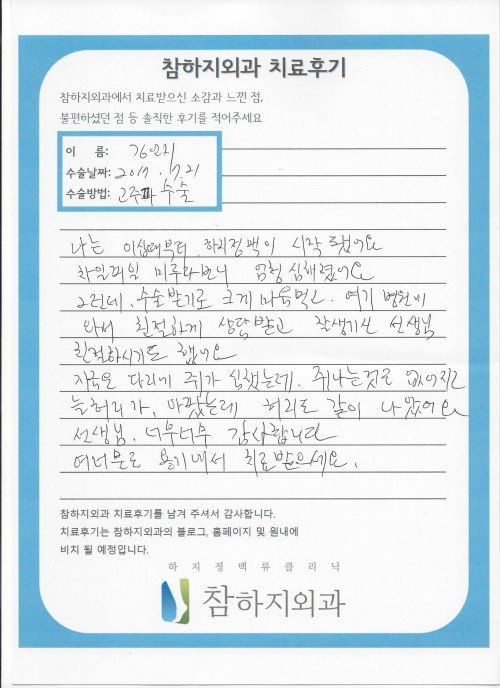 참하지외과 치료후기
참하지외과에서 치료받으신 소감과 느낀 점,
불편하셨던 점 등 솔직한 후기를 적어주세요
이 름: 김연지
수술날짜: 2017. 7. 21
수술방법: 고주파 수술
나는 이십대부터 하지정맥이 시작 됐어요
차일피일 미루다보니 엄청 심해졌어요
그런데, 수술받기로 크게 마음먹고. 여기 병원에
와서 친절하게 상담받고 잘생기신 선생님
친절하시기도 했어요
지금은 다리에 쥐가 심했는데. 쥐나는것은 없어지고
늘허리가, 아팠는데 허리도 같이 나았어요
선생님. 너무너무 감사합니다
여러분도 용기내서 치료받으세요.
참하지외과 치료후기를 남겨 주셔서 감사합니다.
치료후기는 참하지외과의 블로그, 홈페이지 및 원내에
비치 될 예정입니다.
하지정맥류클리닉
참하지외과